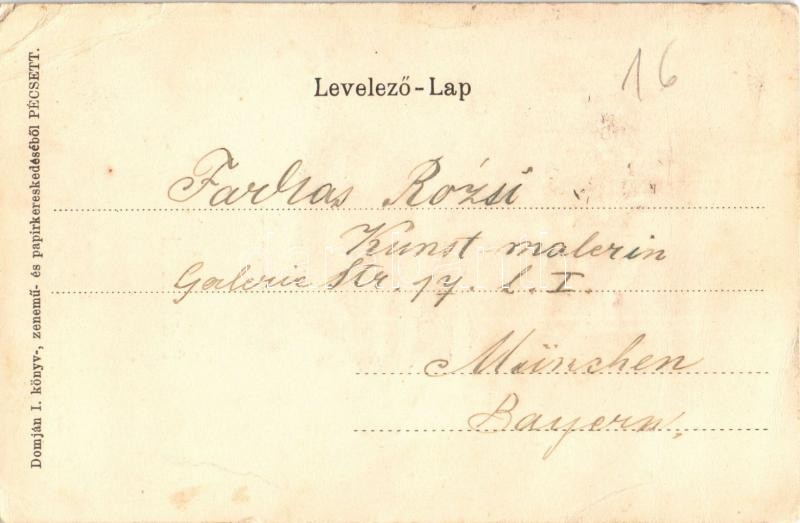 Levelező-Lap
16
Farkas Rózsi
Kunst malerin
Galerie Str. 17. l. I.
München
Bayern,
Domján I. könyv-, zenemű- és papirkereskedéséből PÉCSETT.